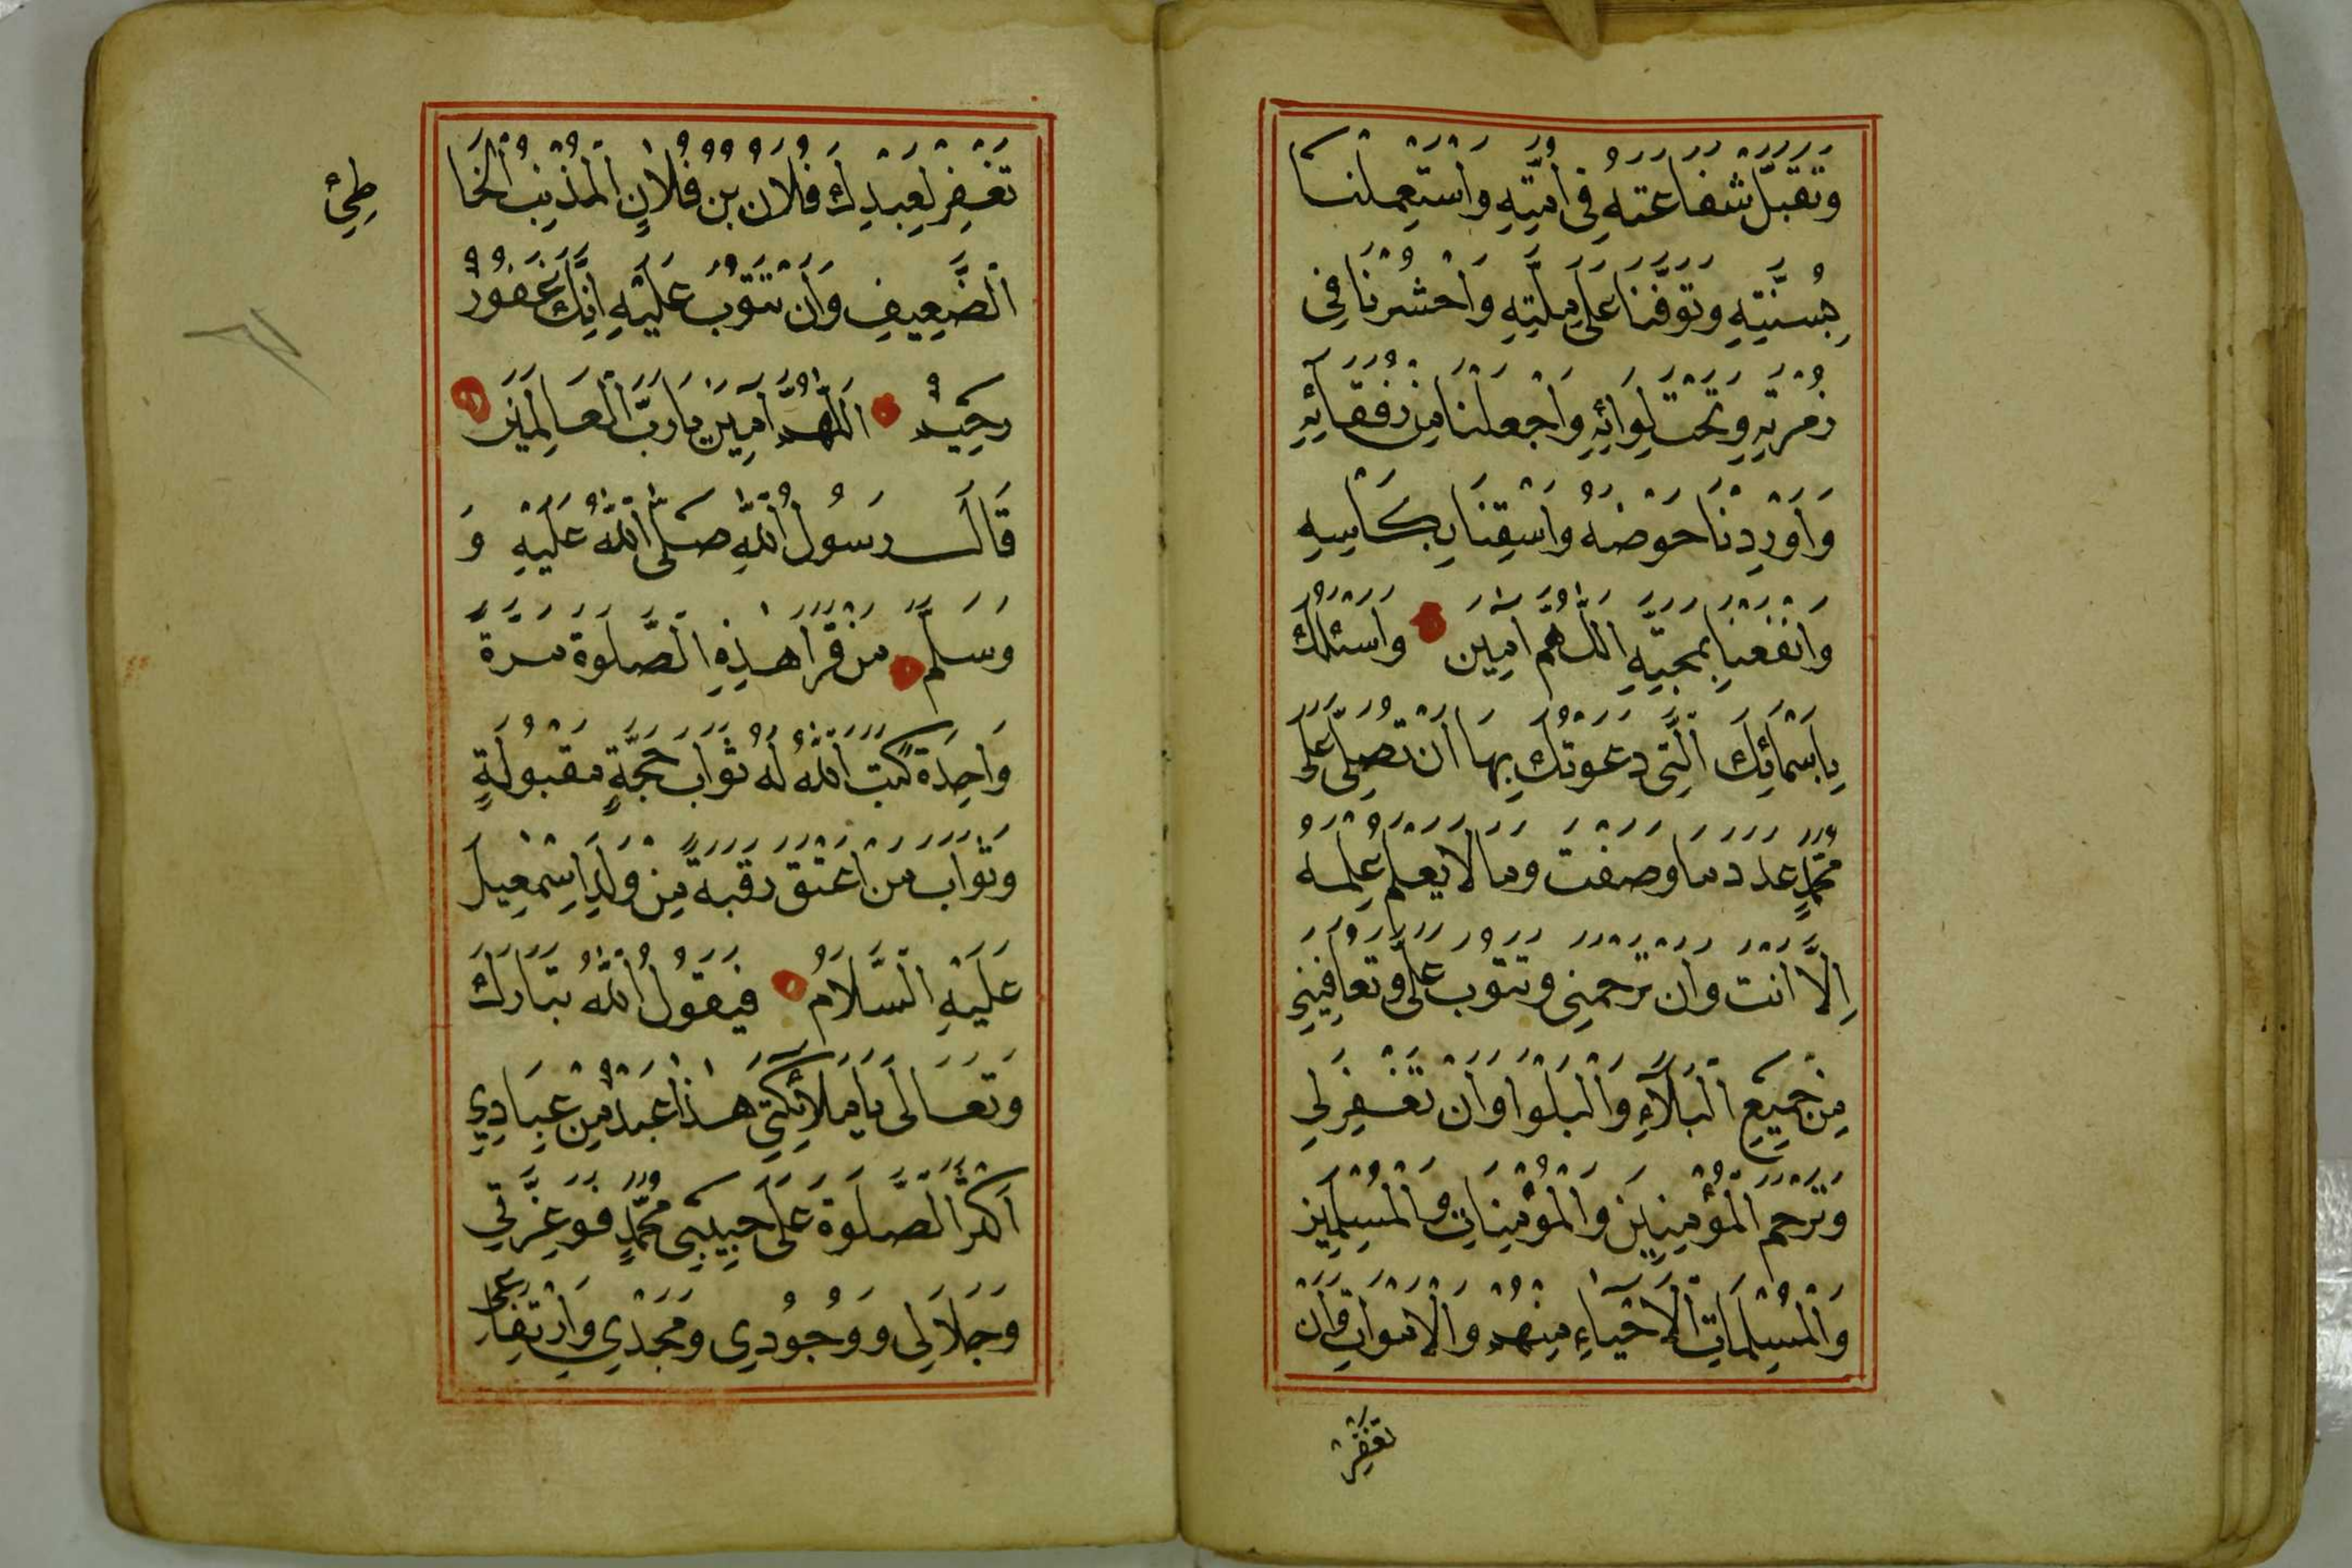 وَتَقَبَّلْ شَفَاعَتَهُ فِي اُمَّتِهِ وَاسْتَعْمِلْنَا
بِسُنَّتِهِ وَتَوَفَّنَا عَلَى مِلَّتِهِ وَاحْشُرْنَا فِي
زُمْرَتِهِ وَتَحْتَ لِوَائِهِ وَاجْعَلْنَا مِنْ رُفَقَائِهِ
وَاَوْرِدْنَا حَوْضَهُ وَاسْقِنَا بِكَأْسِهِ
وَانْفَعْنَا بِمَحَبَّتِهِ اَللّٰهُمَّ اٰمِينَ وَاَسْئَلُكَ
بِاَسْمَائِكَ الَّتِي دَعَوْتُكَ بِهَا اَنْ تُصَلِّيَ عَلَى
مُحَمَّدٍ عَدَدَ مَا وَصَفْتَ وَمَا لَا يَعْلَمُ عِلْمَهُ
اِلَّا اَنْتَ وَاَنْ تَرْحَمَنِي وَتَتُوبَ عَلَيَّ وَتُعَافِيَنِي
مِنْ جَمِيعِ الْبَلَاءِ وَالْبَلْوَا وَاَنْ تَغْفِرَ لِي
وَتَرْحَمَ الْمُؤْمِنِينَ وَالْمُؤْمِنَاتِ وَالْمُسْلِمِينَ
وَالْمُسْلِمَاتِ الْاَحْيَاءِ مِنْهُمْ وَالْاَمْوَاتِ وَاَنْ
تَغْفِرَ
تَغْفِرَ لِعَبْدِكَ فُلَانِ بْنِ فُلَانٍ الْمُذْنِبِ الْخَا
طِئِ
الضَّعِيفِ وَاَنْ تَتُوبَ عَلَيْهِ اِنَّكَ غَفُورٌ
رَحِيمٌ اَللّٰهُمَّ اٰمِينَ يَا رَبَّ الْعَالَمِينَ
قَالَ رَسُولُ اللّٰهِ صَلَّى اللّٰهُ عَلَيْهِ وَ
وَسَلَّمَ مَنْ قَرَاَ هٰذِهِ الصَّلٰوةَ مَرَّةً
وَاحِدَةً كَتَبَ اللّٰهُ لَهُ ثَوَابَ حَجَّةٍ مَقْبُولَةٍ
وَثَوَابَ مَنْ اَعْتَقَ رَقَبَةً مِنْ وَلَدِ اِسْمٰعِيلَ
عَلَيْهِ السَّلَامُ فَيَقُولُ اللّٰهُ تَبَارَكَ
وَتَعَالَى يَا مَلَائِكَتِي هٰذَا عَبْدٌ مِنْ عِبَادِي
اَكْثَرَ الصَّلٰوةَ عَلَى حَبِيبِي مُحَمَّدٍ فَوَعِزَّتِي
وَجَلَالِي وَوُجُودِي وَمَجْدِي وَارْتِفَاعِي